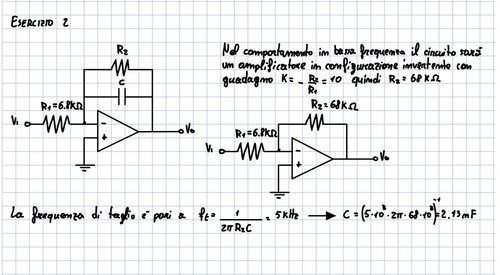 ESERCIZIO 2
R2
C
R1=6.8KΩ
Vi
Vo
Nel comportamento in bassa frequenza il circuito sarà
un amplificatore in configurazione invertente con
guadagno K = - R2/R1 = 10 quindi R2 = 68 KΩ
R2 = 68KΩ
R1=6.8KΩ
Vi
Vo
La frequenza di taglio è pari a ft = 1/2πR2C = 5 KHz → C = (5·10³·2π·68·10³)⁻¹ = 2.13 mF